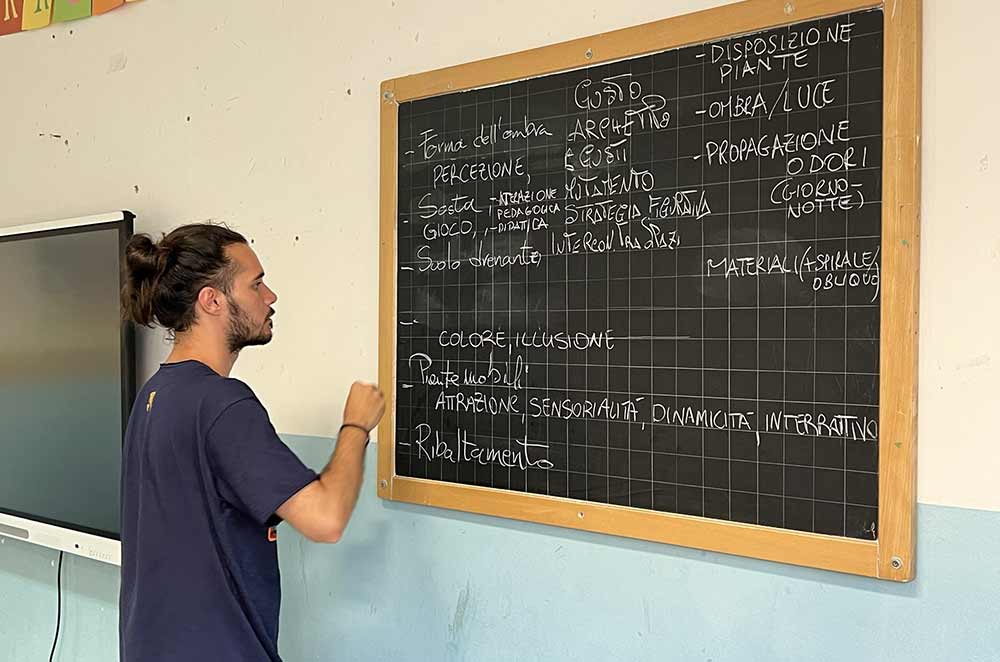 GUSTO
- Forma dell'ombra ARCHETIPO
PERCEZIONE, E GUSTI
- Sosta, - INTERAZIONE MUTAMENTO
GIOCO, PEDAGOGICA STRATEGIA FIGURATIVA
- DIDATICA
- Suolo drenante, INTERCONTRA SPAZI
-
COLORE, ILLUSIONE
- Piante mobili
ATTRAZIONE, SENSORIALITÁ, DINAMICITÁ, INTERRATTIVO
- Ribaltamento
- DISPOSIZIONE
PIANTE
- OMBRA/LUCE
- PROPAGAZIONE
ODORI
(GIORNO-
NOTTE)
MATERIALI (+SPIRALE,
OBLIQUO)